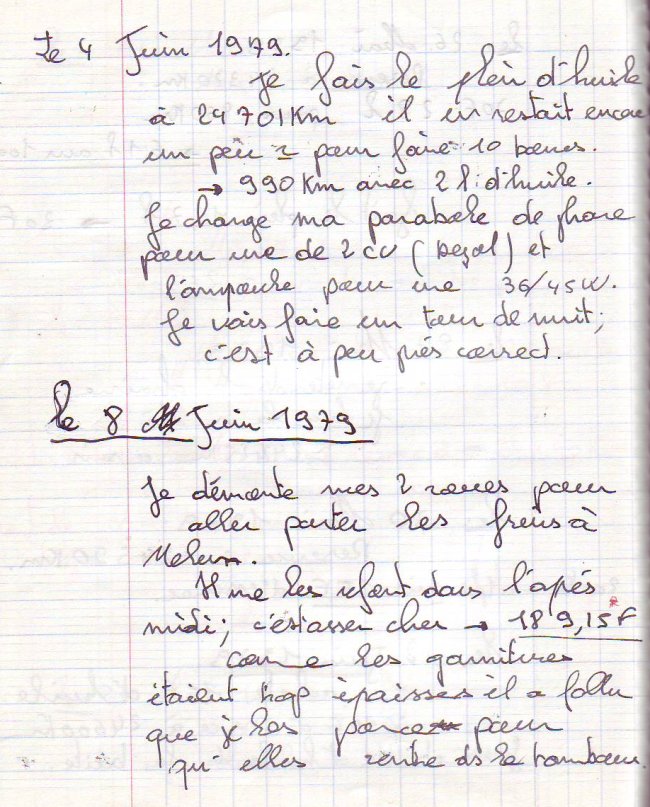 Le 4 Juin 1979.
Je fais le plein d'huile
à 24701Km il en restait encore
un peu 2 pour faire 10 bornes.
→ 990 Km avec 2 l. d'huile.
Je change ma parabole de phare
pour une de 2 CV (              ) et
l'ampoule pour une 36/45W.
Je vais faire un tour de nuit;
c'est à peu près correct.
le 8 Juin 1979
Je démonte mes 2 roues pour
aller porter les freins à
Melun.
Il me les refont dans l'après
midi; c'est assez cher → 189,15F
comme les garnitures
étaient trop épaisses il a fallu
que je les ponce pour
qu'elles rentre ds le tambour.